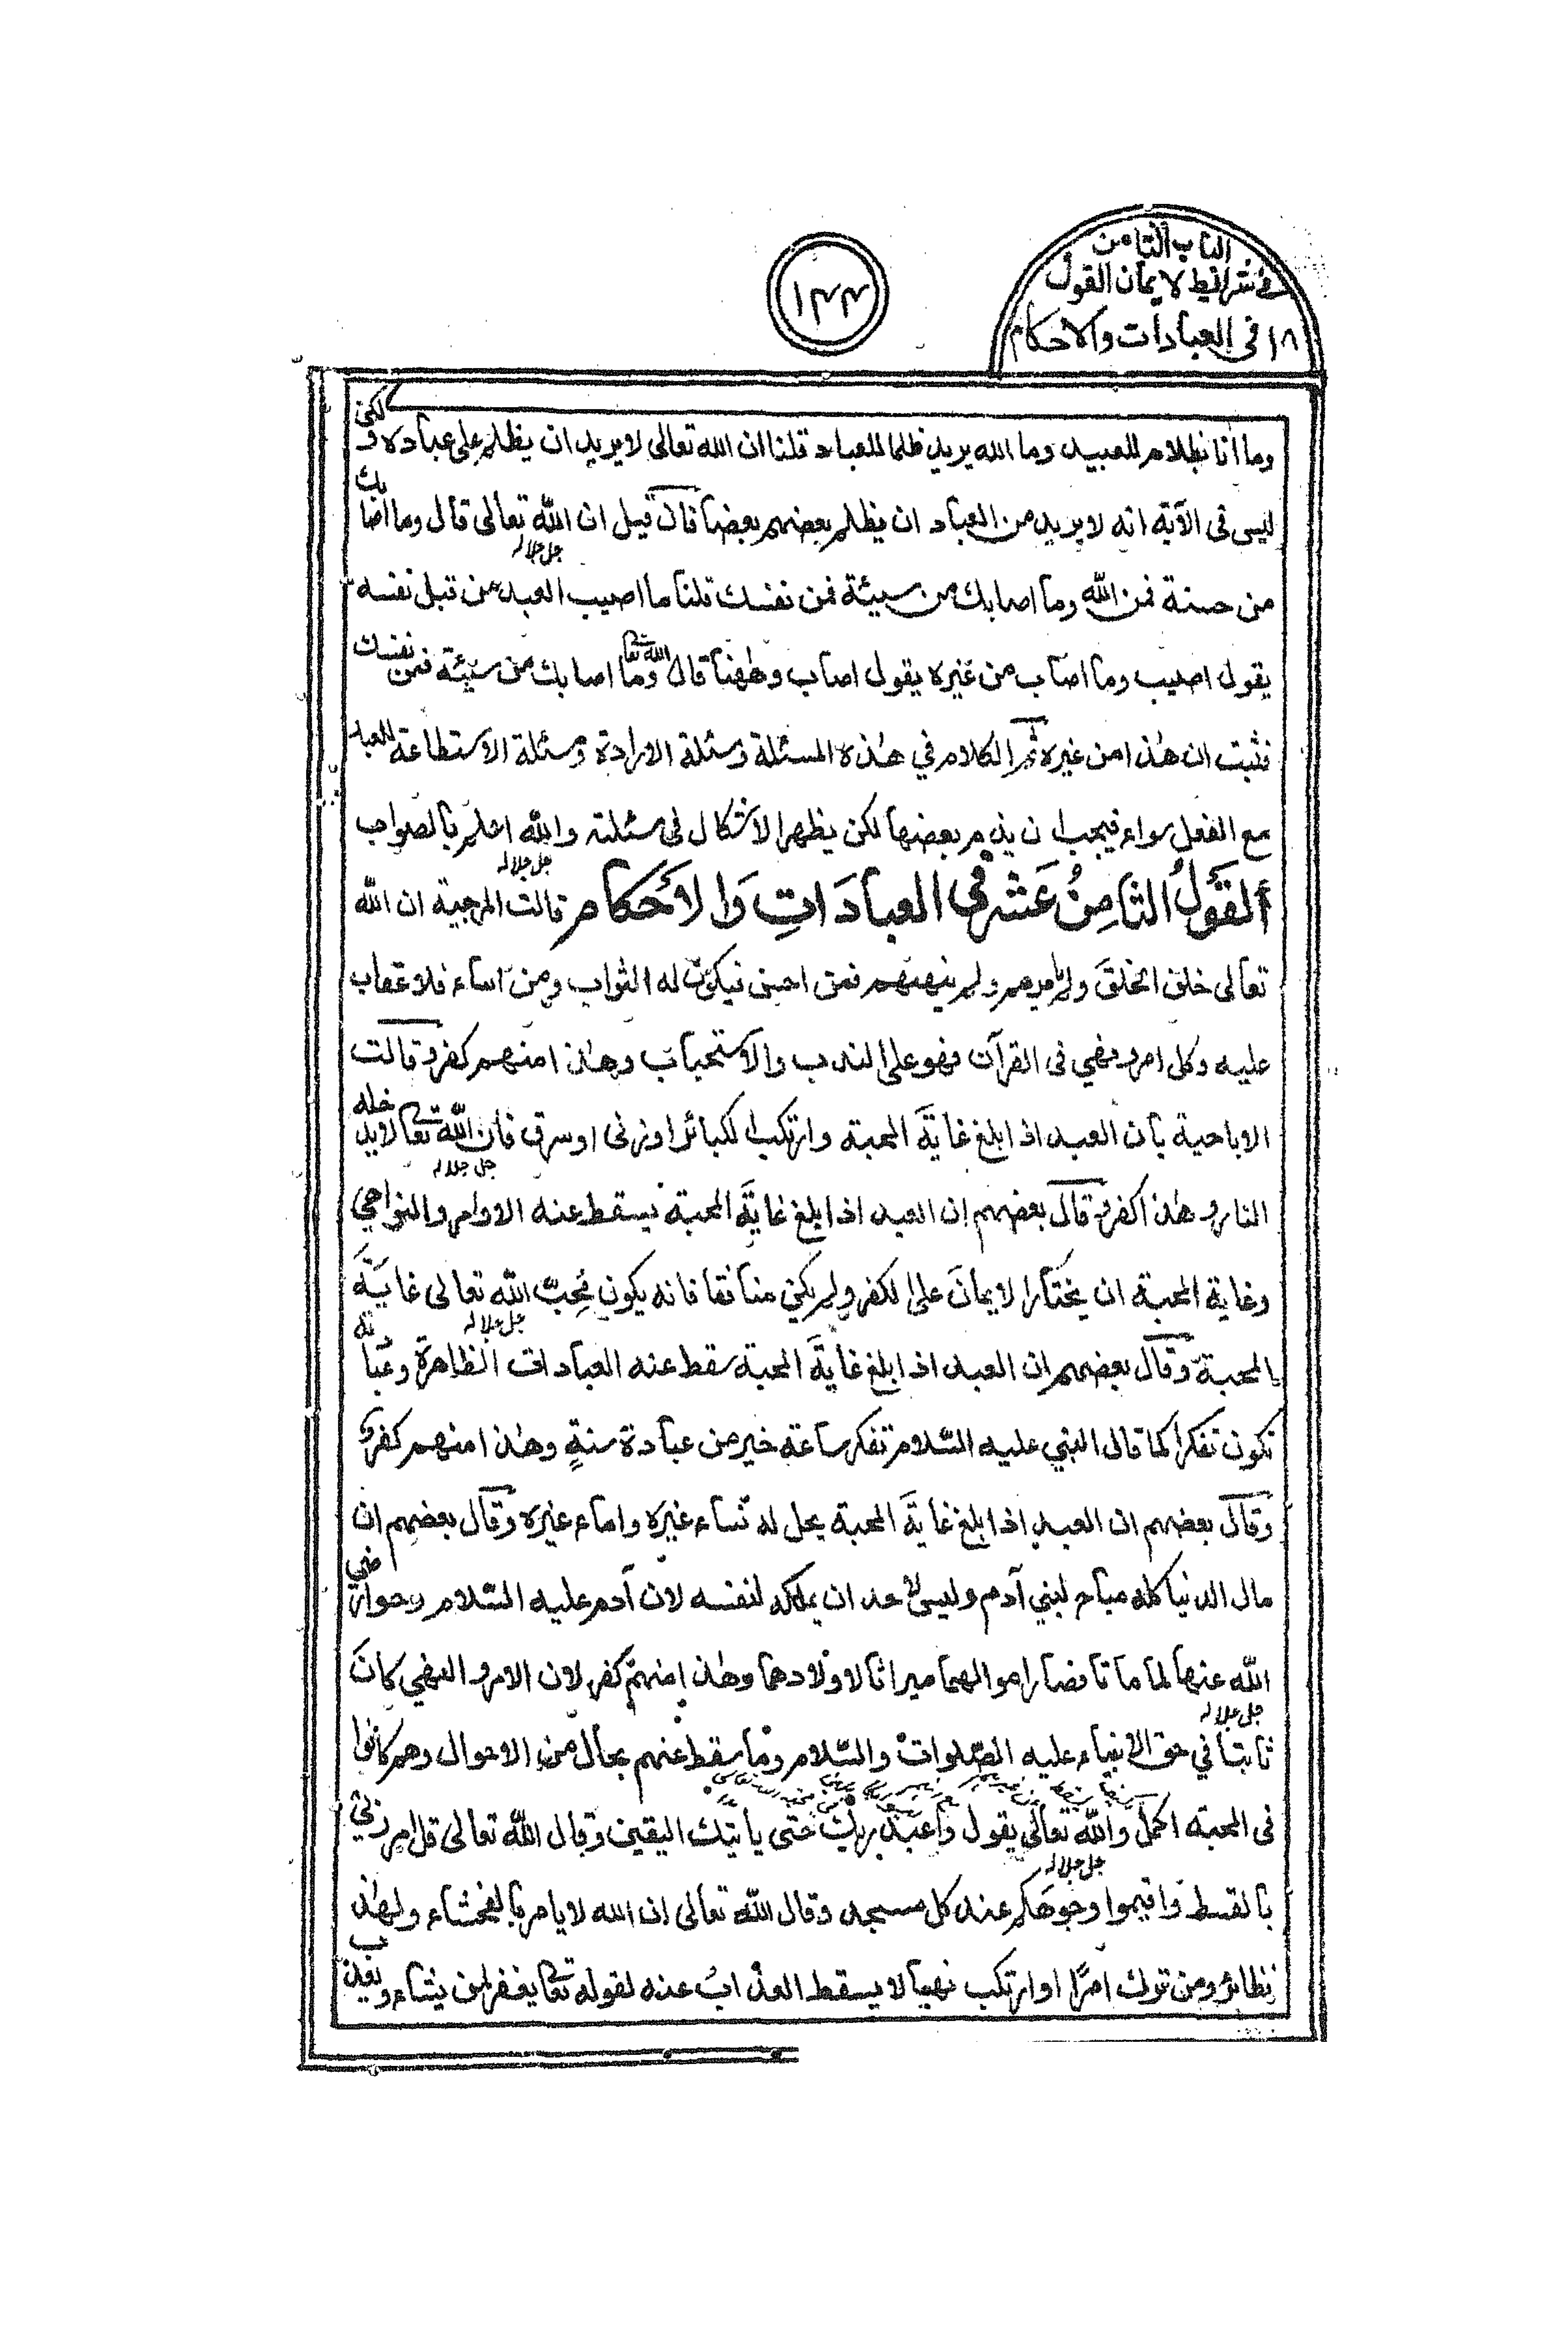 الباب الثامن
في شرائط الايمان القول
١٨ في العبادات والاحكام
١٣٣
وما انا بظلام للعبيد وما الله يريد ظلما للعباد قلنا ان الله تعالى لا يريد ان يظلم على عباده ولكن
ليس في الآية انه لا يريد من العباد ان يظلم بعضهم بعضا فان قيل ان الله تعالى قال وما اصابك
جل جلاله
من حسنة فمن الله وما اصابك من سيئة فمن نفسك قلنا ما اصيب العبد من قبل نفسه
يقول اصيب وما اصاب من غيره يقول اصاب وههنا قال الله تعا وما اصابك من سيئة فمن نفسك
فثبت ان هذا من غيره ثم الكلام في هذه المسئلة ومسئلة الارادة ومسئلة الاستطاعة للعباد
مع الفعل سواء فيجب ان يذم بعضها لكن يظهر الاشكال في مسئلته والله اعلم بالصواب
جل جلاله
أَلقَولُ الثامِنُ عَشر في العبادَاتِ وَالأَحكام قالت المرجية ان الله
تعالى خلق الخلقَ ولم يامرهم ولم ينههم فمن احسن فيكون له الثواب ومن اساء فلا عقاب
عليه وكل امر ونهي في القرآن فهو على الندب والاستحباب وهذا منهم كفر وقالت
الاباحية بان العبد اذا بلغ غايةَ المحبة وارتكب الكبائر او زنى او سرق فان الله تعا لا يدخله
جل جلاله
النار وهذا كفر وقال بعضهم ان العبد اذا بلغ غايةَ المحبة يسقط عنه الاوامر والنواهي
وغاية المحبة ان يختار الايمانَ على الكفر ولم يكن منافقا فانه يكون مُحِبّ الله تعالى غايةَ
جل جلاله
المحبة وقال بعضهم ان العبد اذا بلغ غايةَ المحبة سقط عنه العبادات الظاهرة وعباداته
تكون تفكرا كما قال النبي عليه السّلام تفكر ساعة خير من عبادة سنةٍ وهذا منهم كفر
وقال بعضهم ان العبد اذا بلغ غايةَ المحبة يحل له نساء غيره واماء غيره وقال بعضهم ان
مال الدنيا كله مباح لبني آدم وليس لاحد ان يملكه لنفسه لان آدم عليه السّلام وحواء رضي
الله عنها لما ماتا فصار اموالهما ميراثا لاولادهما وهذا منهم كفر لان الامر والنهي كانَ
جل جلاله
ثابتا في حق الانبياء عليه الصّلوات والسّلام وما سقط عنهم بحال من الاحوال وهم كانوا
في المحبة اكمل والله تعالى يقول واعبد ربك حتى ياتيك اليقين وقال الله تعالى قل امر ربي
جل جلاله
بالقسط واقيموا وجوهكم عند كل مسجد وقال الله تعالى ان الله لا يامر بالفحشاء ولهذا
نظائر ومن ترك امرًا او ارتكب نهيا لا يسقط العذاب عنه لقوله تعا يغفر لمن يشاء ويعذب